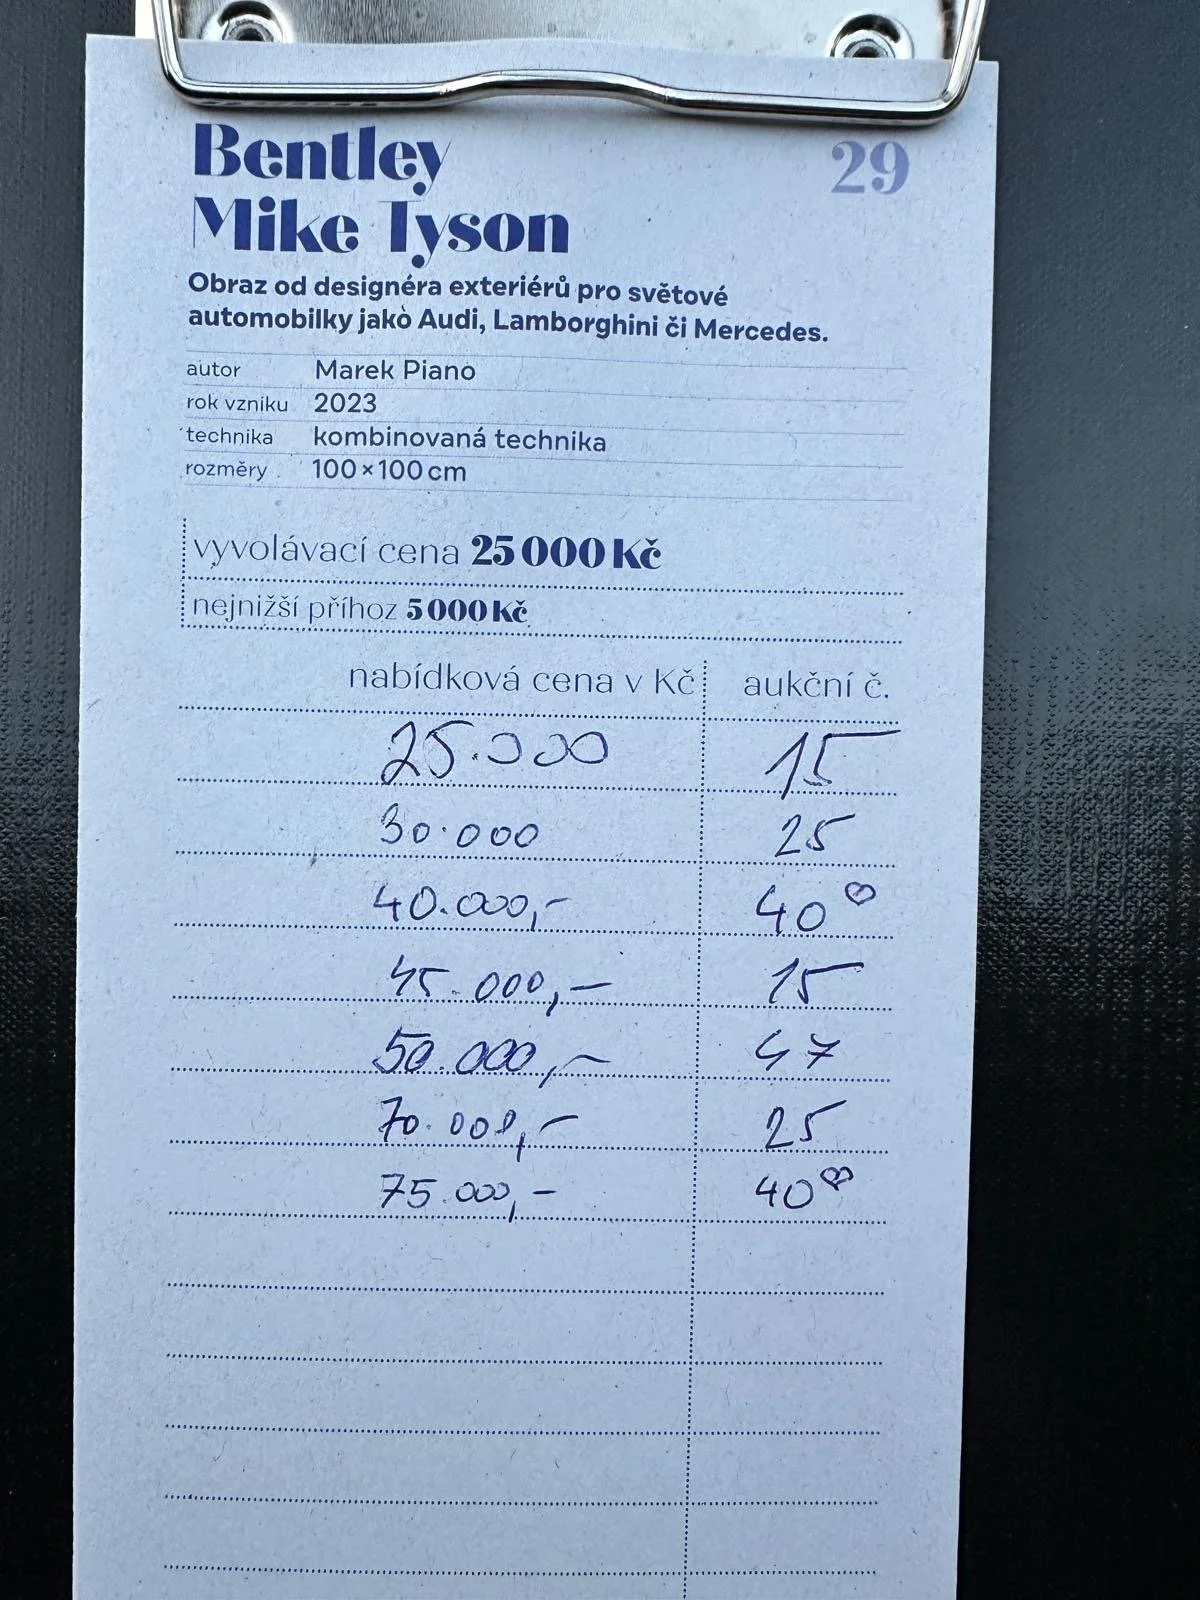 Bentley 29
Mike Tyson
Obraz od designéra exteriérů pro světové
automobilky jako Audi, Lamborghini či Mercedes.
autor Marek Piano
rok vzniku 2023
technika kombinovaná technika
rozměry 100×100 cm
vyvolávací cena 25 000 Kč
nejnižší příhoz 5 000 Kč
nabídková cena v Kč aukční č.
25.000 15
30.000 25
40.000,- 40 ♡
45.000,- 15
50.000,- 47
70.000,- 25
75.000,- 40 ♡